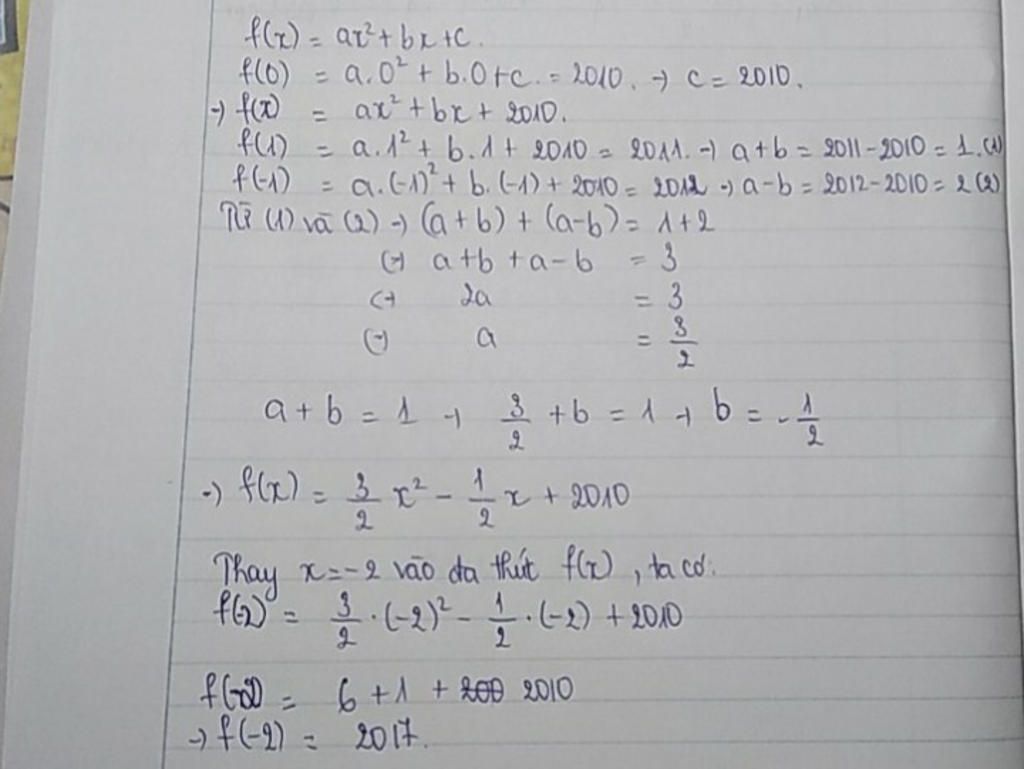 f(x) = ax² + bx + c.
f(0) = a.0² + b.0 + c. = 2010. → c = 2010.
→ f(x) = ax² + bx + 2010.
f(1) = a.1² + b.1 + 2010 = 2011. → a + b = 2011 - 2010 = 1. (1)
f(-1) = a.(-1)² + b.(-1) + 2010 = 2012 → a - b = 2012 - 2010 = 2 (2)
Từ (1) và (2) → (a + b) + (a - b) = 1 + 2
(→) a + b + a - b = 3
(→ 2a = 3
(→) a = 3/2
a + b = 1 → 3/2 + b = 1 → b = -1/2
→ f(x) = 3/2 x² - 1/2 x + 2010
Thay x = -2 vào đa thức f(x), ta có:
f(-2) = 3/2 . (-2)² - 1/2 . (-2) + 2010
f(-2) = 6 + 1 + 2010
→ f(-2) = 2017.